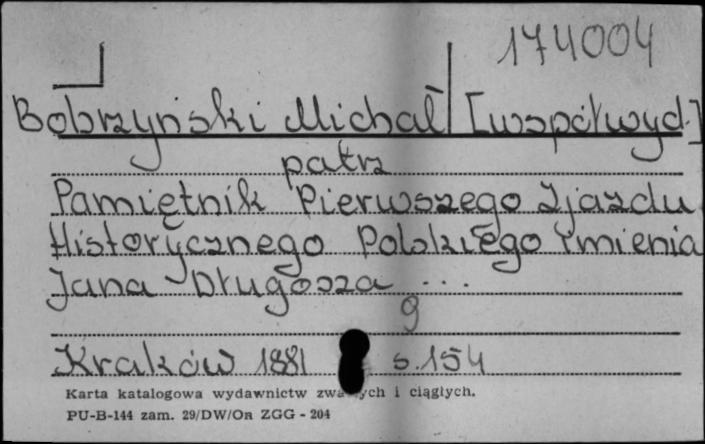 174004
Bobrzyński Michał [współwyd.]
patrz
Pamiętnik Pierwszego Zjazdu
Historycznego Polskiego imienia
Jana Długosza ...
g
Kraków 1881 s. 154
Karta katalogowa wydawnictw i ciągłych.
PU-B-144 zam. 29/DW/On ZGG - 204